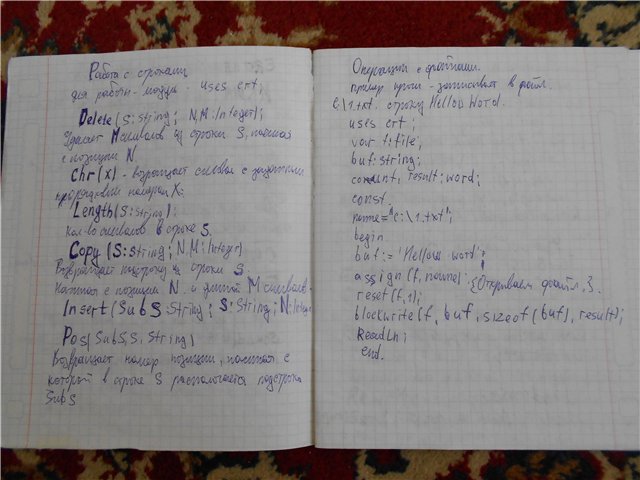 Работа с строками
для работы - модуль - uses crt;
Delete(S:string; N,M:Integer);
Удаляет M символов из строки S, начиная
с позиции N
chr(x) - возращает символ с заданным
порядковым номером X.
Length(S:string);
Кол-во символов в строке S.
Copy (S:string; N,M:Integer)
Возвращает подстроку из строки S.
Начиная с позиции N и длиной M символов.
Insert(SubS:String; S:String; N:Integer
Pos(SubS,S:String)
Возвращает номер позиции, начиная с
которой в строке S располагается подстрока
SubS
Операции с файлами.
пример прогн - записывает в файл
c\1.txt. строку Hellow Word.
uses crt;
var f:file;
buf:string;
count, result:word;
const
name="c:\1.txt";
begin
buf:='Hellow word';
assign(f, name); {Открываем файл.}
reset(f,1);
blockwrite(f, buf, sizeof(buf), result);
ReadLn;
end.